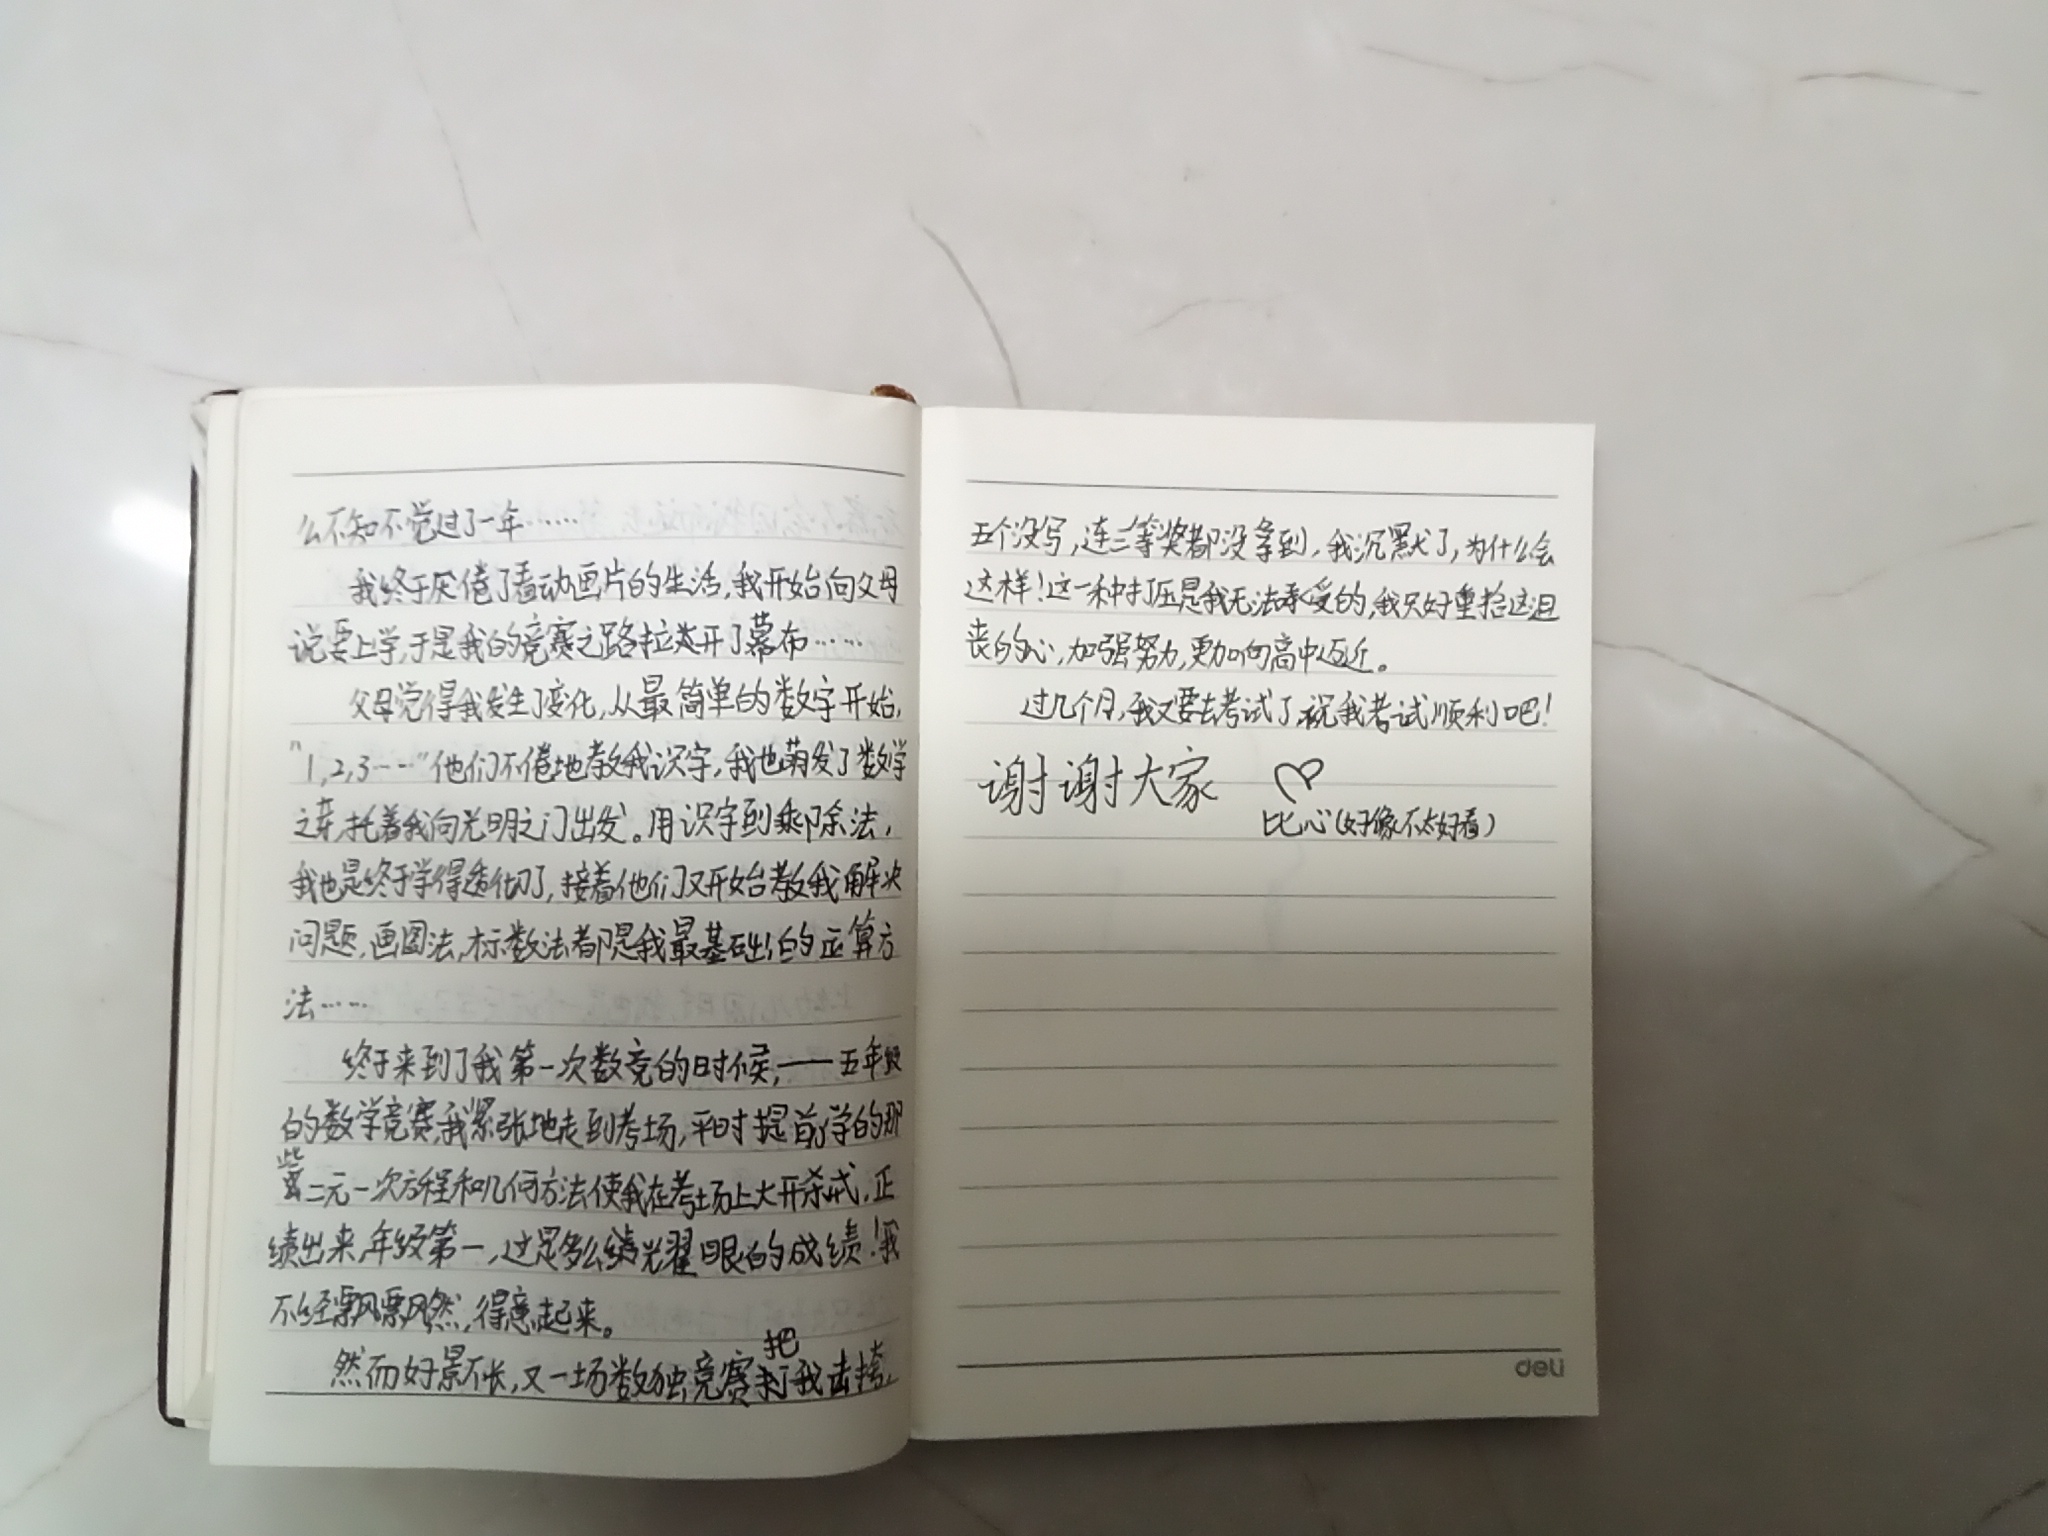 么不知不觉过了一年……
我终于厌倦了看动画片的生活,我开始向父母
说要上学,于是我的竞赛之路拉开了幕布……
父母觉得我发生了变化,从最简单的数字开始,
"1,2,3……"他们不倦地教我识字,我也萌发了数学
之芽,托着我向光明之门出发。用识字到乘除法,
我也是终于学得透彻了,接着他们又开始教我解决
问题,画图法,标数法都是我最基础的运算方
法……
终于来到了我第一次数竞的时候,——五年级
的数学竞赛,我紧张地走到考场,平时提前学的那
些二元一次方程和几何方法使我在考场上大开杀戒,正
绩出来,年级第一,这是多么光耀眼的成绩!我
不经飘飘然,得意起来。
然而好景不长,又一场数独竞赛把我击垮,
五个没写,连三等奖都没拿到,我沉默了,为什么会
这样!这一种打压是我无法承受的,我只好重拾这沮
丧的心,加强努力,更加向高中迈近。
过几个月,我又要去考试了,祝我考试顺利吧!
谢谢大家
比心(好像不太好看)
deli